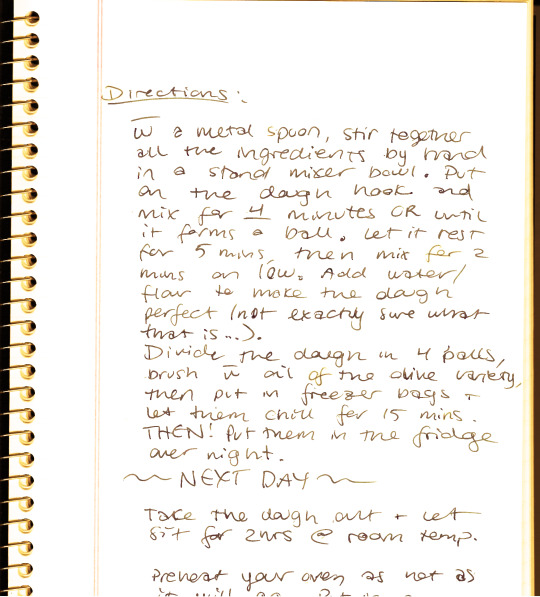 Directions:
w̅ a metal spoon, stir together
all the ingredients by hand
in a stand mixer bowl. Put
on the dough hook and
mix for 4 minutes OR until
it forms a ball. Let it rest
for 5 mins, then mix for 2
mins on low. Add water/
flour to make the dough
perfect (not exactly sure what
that is...).
Divide the dough in 4 balls,
brush w̅ oil of the olive variety,
then put in freezer bags +
let them chill for 15 mins.
THEN! Put them in the fridge
over night.
~ NEXT DAY ~
Take the dough out + let
sit for 2hrs @ room temp.
Preheat your oven as hot as
it will go. Put